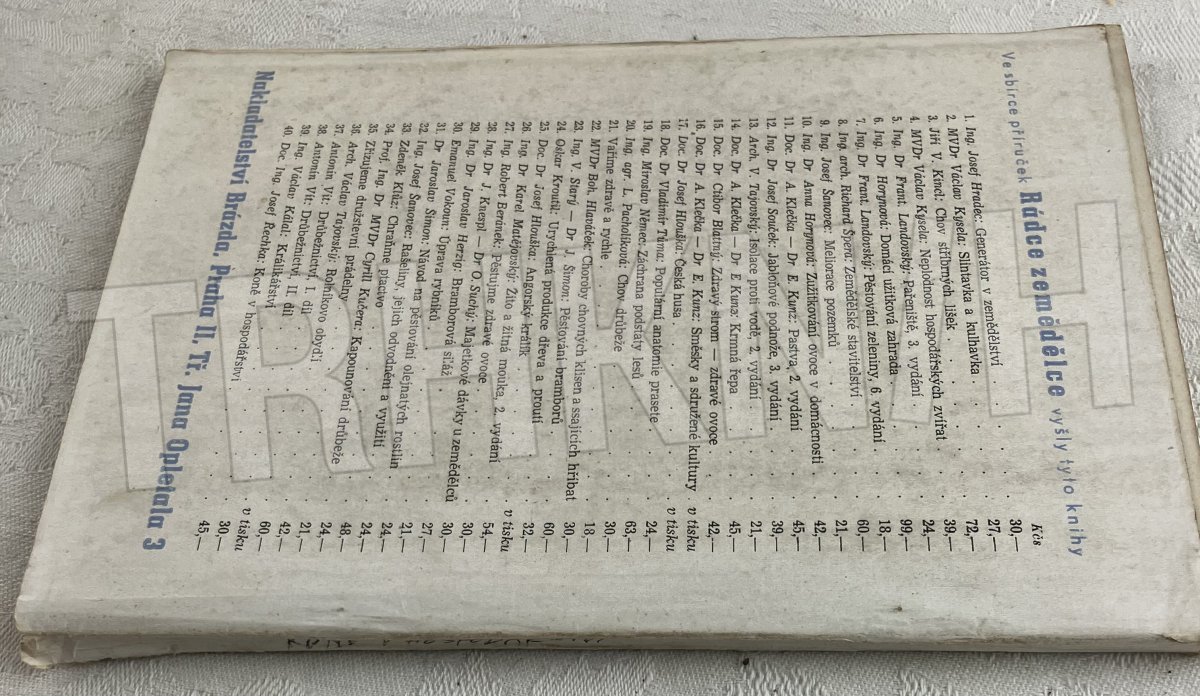 Ve sbírce příruček Rádce zemědělce vyšly tyto knihy
Kčs
1. Ing. Josef Hradec: Generátor v zemědělství . . . 30,—
2. MVDr Václav Kysela: Slintavka a kulhavka . . . 27,—
3. Jiří V. Kincl: Chov stříbrných lišek . . . 72,—
4. MVDr Václav Kysela: Neplodnost hospodářských zvířat 39,—
5. Ing. Dr Frant. Landovský: Pařeniště, 3. vydání . . 24,—
6. Ing. Dr Horynová: Domácí užitková zahrada . . . 99,—
7. Ing. Dr Frant. Landovský: Pěstování zeleniny, 6. vydání 18,—
8. Ing. arch. Richard Špera: Zemědělské stavitelství . . 60,—
9. Ing. Josef Šanovec: Meliorace pozemků . . . 21,—
10. Ing. Dr Anna Horynová: Zužitkování ovoce v domácnosti 42,—
11. Doc. Dr A. Klečka — Dr E. Kunz: Pastva, 2. vydání . . 45,—
12. Ing. Dr Josef Souček: Jabloňové podnože, 3. vydání . 39,—
13. Arch. V. Tajovský: Isolace proti vodě, 2. vydání . . 21,—
14. Doc. Dr A. Klečka — Dr E Kunz: Krmná řepa . . 45,—
15. Doc. Dr Ctibor Blattný: Zdravý strom — zdravé ovoce . 42,—
16. Doc. Dr A. Klečka — Dr E. Kunz: Směsky a sdružené kultury v tisku
17. Doc. Dr Josef Hlouška: Česká husa . . . v tisku
18. Doc. Dr Vladimír Tůma: Populární anatomie prasete . 24,—
19. Ing. Miroslav Němec: Záchrana podstaty lesů . . 63,—
20. Ing. agr. L. Pacholíková: Chov drůbeže . . . 30,—
21. Vaříme zdravě a rychle . . . 18,—
22. MVDr Boh. Hlaváček: Choroby chovných klisen a ssajících hříbat 30,—
23. Ing. V. Starý — Dr J. Šimon: Pěstování bramborů . 60,—
24. Oskar Kroutil: Urychlená produkce dřeva a proutí . . 32,—
25. Doc. Dr Josef Hlouška: Angorský králík . . . v tisku
26. Ing. Dr Karel Matějovský: Žito a žitná mouka, 2. vydání 54,—
27. Ing. Robert Beránek: Pěstujme zdravé ovoce . . 30,—
28. Ing. Dr J. Knespl — Dr O. Suchý: Majetkové dávky u zemědělců 30,—
29. Ing. Dr Jaroslav Herzig: Bramborová siláž . . . 27,—
30. Emanuel Vokoun: Úprava rybníků . . . 21,—
31. Dr Jaroslav Šimon: Návod na pěstování olejnatých rostlin 24,—
32. Ing. Josef Šanovec: Rašeliny, jejich odvodnění a využití 24,—
33. Zdeněk Klůz: Chraňme ptactvo . . . 48,—
34. Prof. Ing. Dr MVDr Cyril Kučera: Kapounování drůbeže 24,—
35. Zřizujeme družstevní prádelny . . . 21,—
36. Arch. Václav Tajovský: Rolníkovo obydlí . . . 42,—
37. Antonín Vít: Drůbežnictví, I. díl . . . 60,—
38. Antonín Vít: Drůbežnictví, II. díl . . . v tisku
39. Ing. Václav Kálal: Králíkářství . . . 30,—
40. Doc. Ing. Josef Řechka: Koně v hospodářství . . . 45,—
Nakladatelství Brázda, Praha II, Tř. Jana Opletala 3